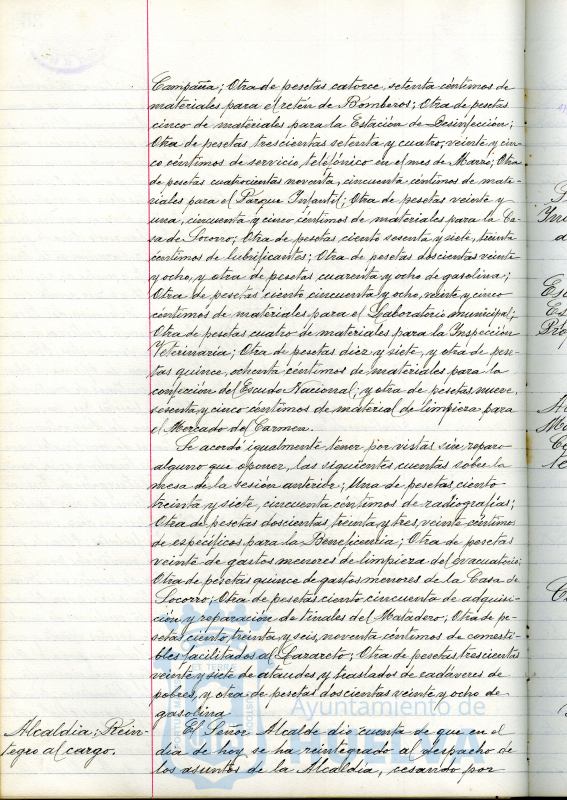 Campaña; Otra de pesetas catorce, setenta céntimos de
materiales para el retén de Bomberos; Otra de pesetas
cinco de materiales para la Estación de Desinfección;
Otra de pesetas trescientas setenta y cuatro, veinte y cin-
co céntimos de servicio telefónico en el mes de Marzo; Otra
de pesetas cuatrocientas noventa, cincuenta céntimos de mate-
riales para el Parque Infantil; Otra de pesetas veinte y
una, cincuenta y cinco céntimos de materiales para la Ca-
sa de Socorro; Otra de pesetas ciento sesenta y siete, treinta
céntimos de lubrificantes; Otra de pesetas doscientas veinte
y ocho, y otra de pesetas cuarenta y ocho de gasolina;
Otra de pesetas ciento cincuenta y ocho, veinte y cinco
céntimos de materiales para el Laboratorio municipal;
Otra de pesetas cuatro de materiales para la Inspección
Veterinaria; Otra de pesetas diez y siete, y otra de pese-
tas quince, ochenta céntimos de materiales para la
confección del Escudo Nacional, y otra de pesetas nueve,
sesenta y cinco céntimos de material de limpieza para
el Mercado del Carmen.
Se acordó igualmente tener por vistas sin reparo
alguno que oponer, las siguientes cuentas sobre la
mesa de la sesión anterior; Una de pesetas ciento
treinta y siete, cincuenta céntimos de radiografías;
Otra de pesetas doscientas treinta y tres, veinte céntimos
de específicos para la Beneficencia; Otra de pesetas
veinte de gastos menores de limpieza del evacuatorio;
Otra de pesetas quince de gastos menores de la Casa de
Socorro; Otra de pesetas ciento cincuenta de adquisi-
ción y reparación de tinales del Matadero; Otra de pe-
setas ciento treinta y seis, noventa céntimos de comesti-
bles facilitados al Lazareto; Otra de pesetas trescientas
veinte y siete de ataudes y traslados de cadáveres de
pobres, y otra de pesetas doscientas veinte y ocho de
gasolina.
Alcaldia; Rein-
tegro al cargo.
El Señor Alcalde dio cuenta de que en el
día de hoy se ha reintegrado al despacho de
los asuntos de la Alcaldía, cesando por
Ayuntamiento de
HUELVA